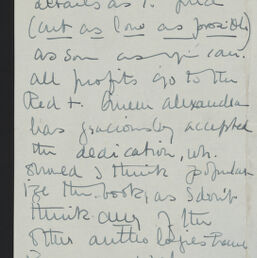 details as to
(but as low as possible)
as soon as you can.
all profits go to the
Red + Queen Alexandra
has graciously accepted
the dedication, wh.
should I think popular
ize the book, as I don't
think any of the
other anthologies have